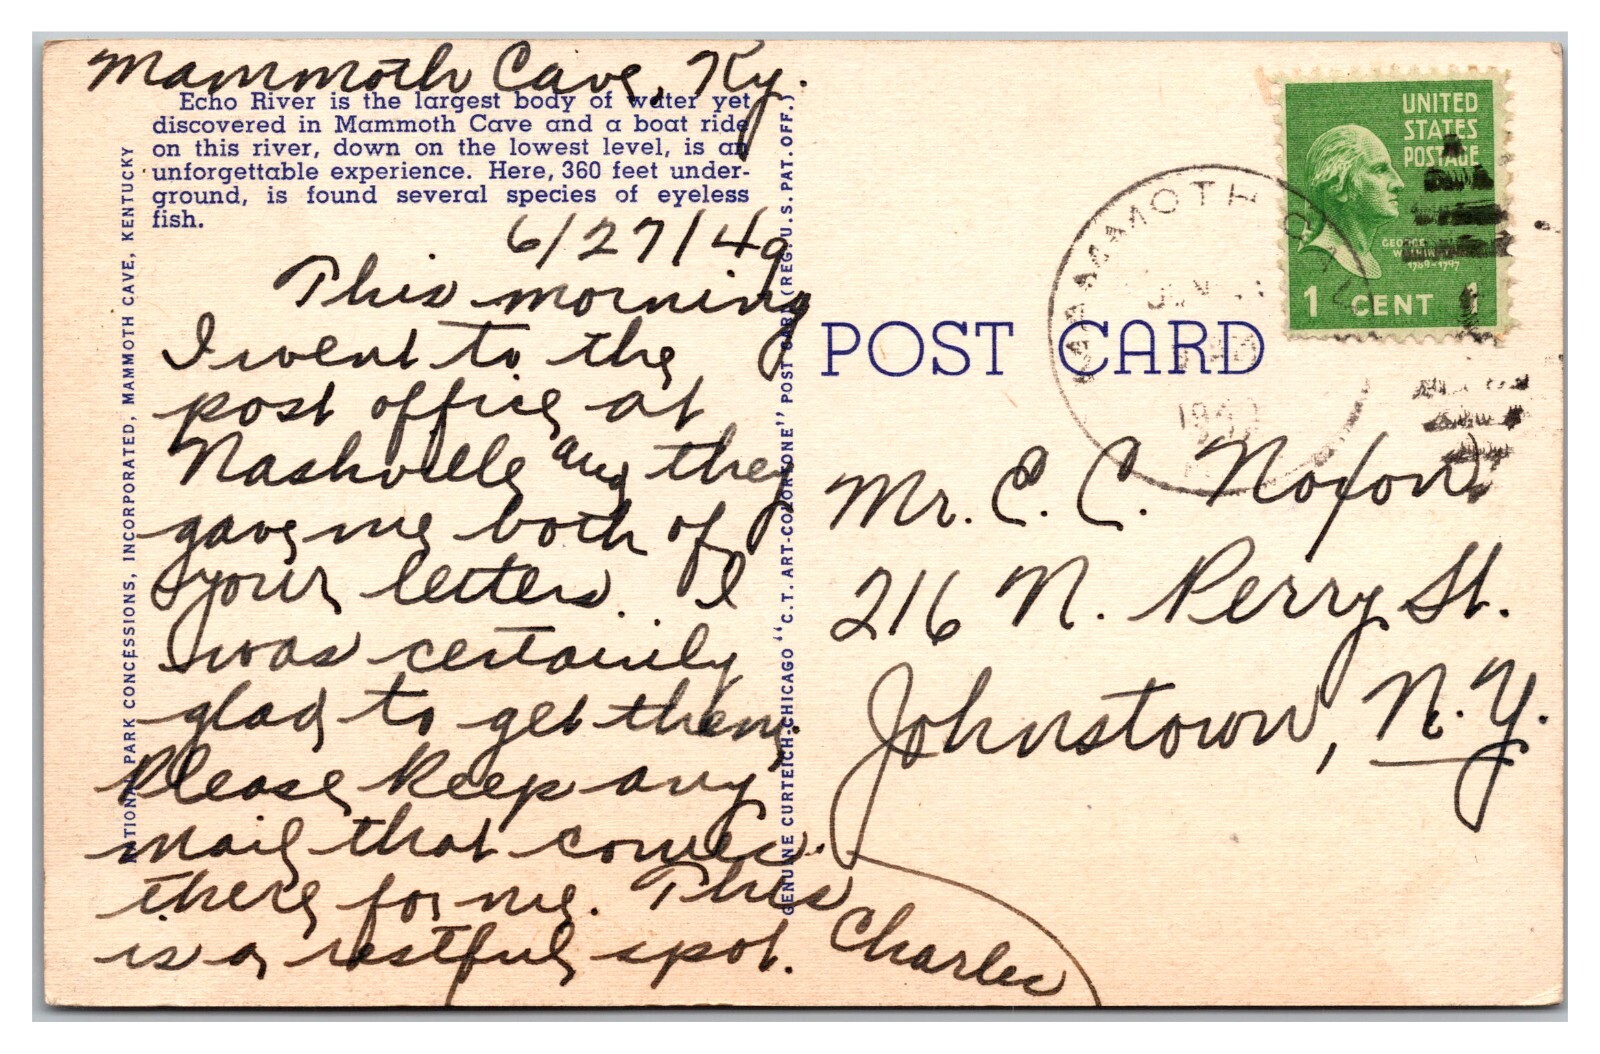 Mammoth Cave, Ky.
Echo River is the largest body of water yet
discovered in Mammoth Cave and a boat ride
on this river, down on the lowest level, is an
unforgettable experience. Here, 360 feet under-
ground, is found several species of eyeless
fish.
6/27/49
This morning
I went to the
post office at
Nashville and they
gave me both of
your letters. I
was certainly
glad to get them.
Please keep any
mail that comes
there for me. This
is a restful spot. Charles
NATIONAL PARK CONCESSIONS, INCORPORATED, MAMMOTH CAVE, KENTUCKY
GENUINE CURTEICH-CHICAGO "C.T. ART-COLORTONE" POST CARD (REG. U.S. PAT. OFF.)
POST CARD
MAMMOTH CAVE
1949
UNITED
STATES
POSTAGE
GEORGE
WASHINGTON
1789-1797
1 CENT 1
Mr. C. C. Noxon
216 N. Perry St.
Johnstown, N.Y.